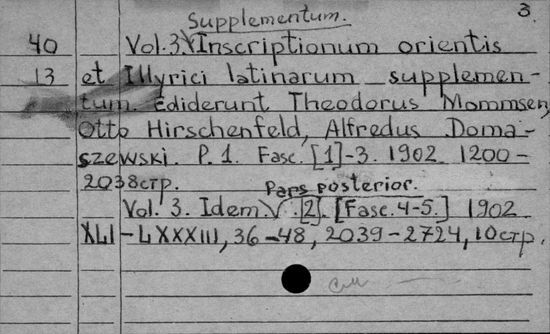 3.
Supplementum.
40 Vol. 3 V Inscriptionum orientis
13 et Illyrici latinarum supplemen-
tum. Ediderunt Theodorus Mommsen,
Otto Hirschenfeld, Alfredus Doma-
szewski. P. 1. Fasc. [1]-3. 1902 1200-
2038стр.
Pars posterior.
Vol. 3. Idem. V. [2]. [Fasc. 4-5.] 1902
XLI-LXXXIII, 36-48, 2039-2724, 10стр.
см